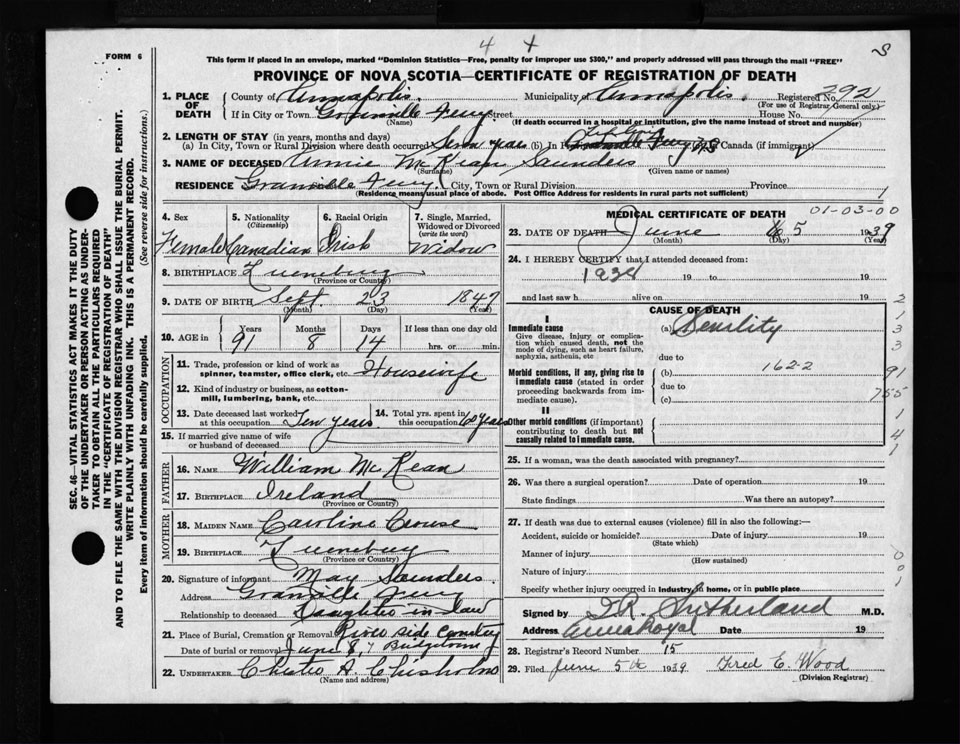 4 X
S
FORM 6
This form if placed in an envelope, marked "Dominion Statistics—Free, penalty for improper use $300," and properly addressed will pass through the mail "FREE"
PROVINCE OF NOVA SCOTIA—CERTIFICATE OF REGISTRATION OF DEATH
SEC. 46—VITAL STATISTICS ACT MAKES IT THE DUTY
OF THE UNDERTAKER OR PERSON ACTING AS UNDER-
TAKER TO OBTAIN ALL THE PARTICULARS REQUIRED
IN THE "CERTIFICATE OF REGISTRATION OF DEATH"
AND TO FILE THE SAME WITH THE DIVISION REGISTRAR WHO SHALL ISSUE THE BURIAL PERMIT.
WRITE PLAINLY WITH UNFADING INK. THIS IS A PERMANENT RECORD.
Every item of information should be carefully supplied. (See reverse side for instructions.)
1. PLACE OF DEATH County of Annapolis. Municipality of Annapolis. Registered No. 292
(For use of Registrar General only)
If in City or Town Granville Ferry Street House No.
(Name) (If death occurred in a hospital or institution, give the name instead of street and number)
2. LENGTH OF STAY (in years, months and days)
(a) In City, Town or Rural Division where death occurred Seven years (b). In P Canada (if immigrant)
3. NAME OF DECEASED Annie McKean Saunders
(Surname) (Given name or names)
RESIDENCE Granville Ferry. City, Town or Rural Division Province 1
(Residence means usual place of abode. Post Office Address for residents in rural parts not sufficient)
4. Sex 5. Nationality (Citizenship) 6. Racial Origin 7. Single, Married, Widowed or Divorced (write the word)
Female Canadian Irish Widow
8. BIRTHPLACE Lunenburg
(Province or Country)
9. DATE OF BIRTH Sept. 23 1847
(Month) (Day) (Year)
10. AGE in Years Months Days If less than one day old
91 8 14 hrs. or min.
OCCUPATION
11. Trade, profession or kind of work as spinner, teamster, office clerk, etc. Housewife
12. Kind of industry or business, as cotton-mill, lumbering, bank, etc.
13. Date deceased last worked at this occupation Ten years. 14. Total yrs. spent in this occupation 60 years
15. If married give name of wife or husband of deceased
FATHER
16. NAME William McKean
17. BIRTHPLACE Ireland
(Province or Country)
MOTHER
18. MAIDEN NAME Caroline Crouse
19. BIRTHPLACE Lunenburg
(Province or Country)
20. Signature of informant May Saunders.
Address Granville Ferry
Relationship to deceased Daughter-in-law
21. Place of Burial, Cremation or Removal River side Cemetery
Date of burial or removal June 8, Bridgetown
22. UNDERTAKER A. Chisholm
(Name and address)
MEDICAL CERTIFICATE OF DEATH
01-03-00
23. DATE OF DEATH June 5 1939
(Month) (Day) (Year)
24. I HEREBY CERTIFY that I attended deceased from:
1938 19 to 19
and last saw h alive on 19
CAUSE OF DEATH
I
Immediate cause
Give disease, injury or complication which caused death, not the mode of dying, such as heart failure, asphyxia, asthenia, etc
(a) Senility
due to
Morbid conditions, if any, giving rise to immediate cause (stated in order proceeding backwards from immediate cause).
(b) 162-2
due to
(c)
II
Other morbid conditions (if important) contributing to death but not causally related to immediate cause.
2
1
3
3
91
755
1
4
1
25. If a woman, was the death associated with pregnancy?
26. Was there a surgical operation? Date of operation 19
State findings Was there an autopsy?
27. If death was due to external causes (violence) fill in also the following:—
Accident, suicide or homicide? Date of injury 19
(State which)
Manner of injury
(How sustained)
Nature of injury
0
0
1
Specify whether injury occurred in industry, in home, or in public place
Signed by Sutherland M.D.
Address Anna Royal Date 19
28. Registrar's Record Number 15
29. Filed June 5th 1939 Fred E. Wood
(Division Registrar)